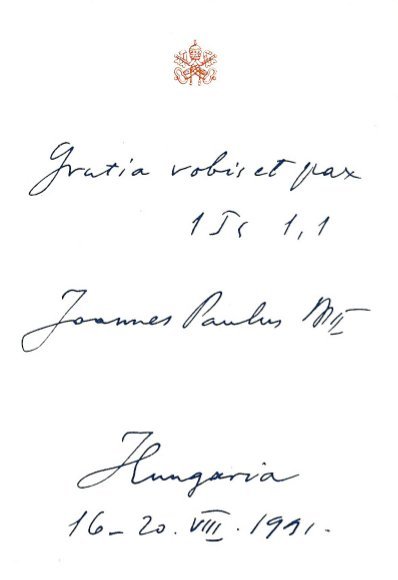 Gratia vobis et pax
1 Ts 1,1
Joannes Paulus PP II
Hungaria
16-20. VIII. 1991.